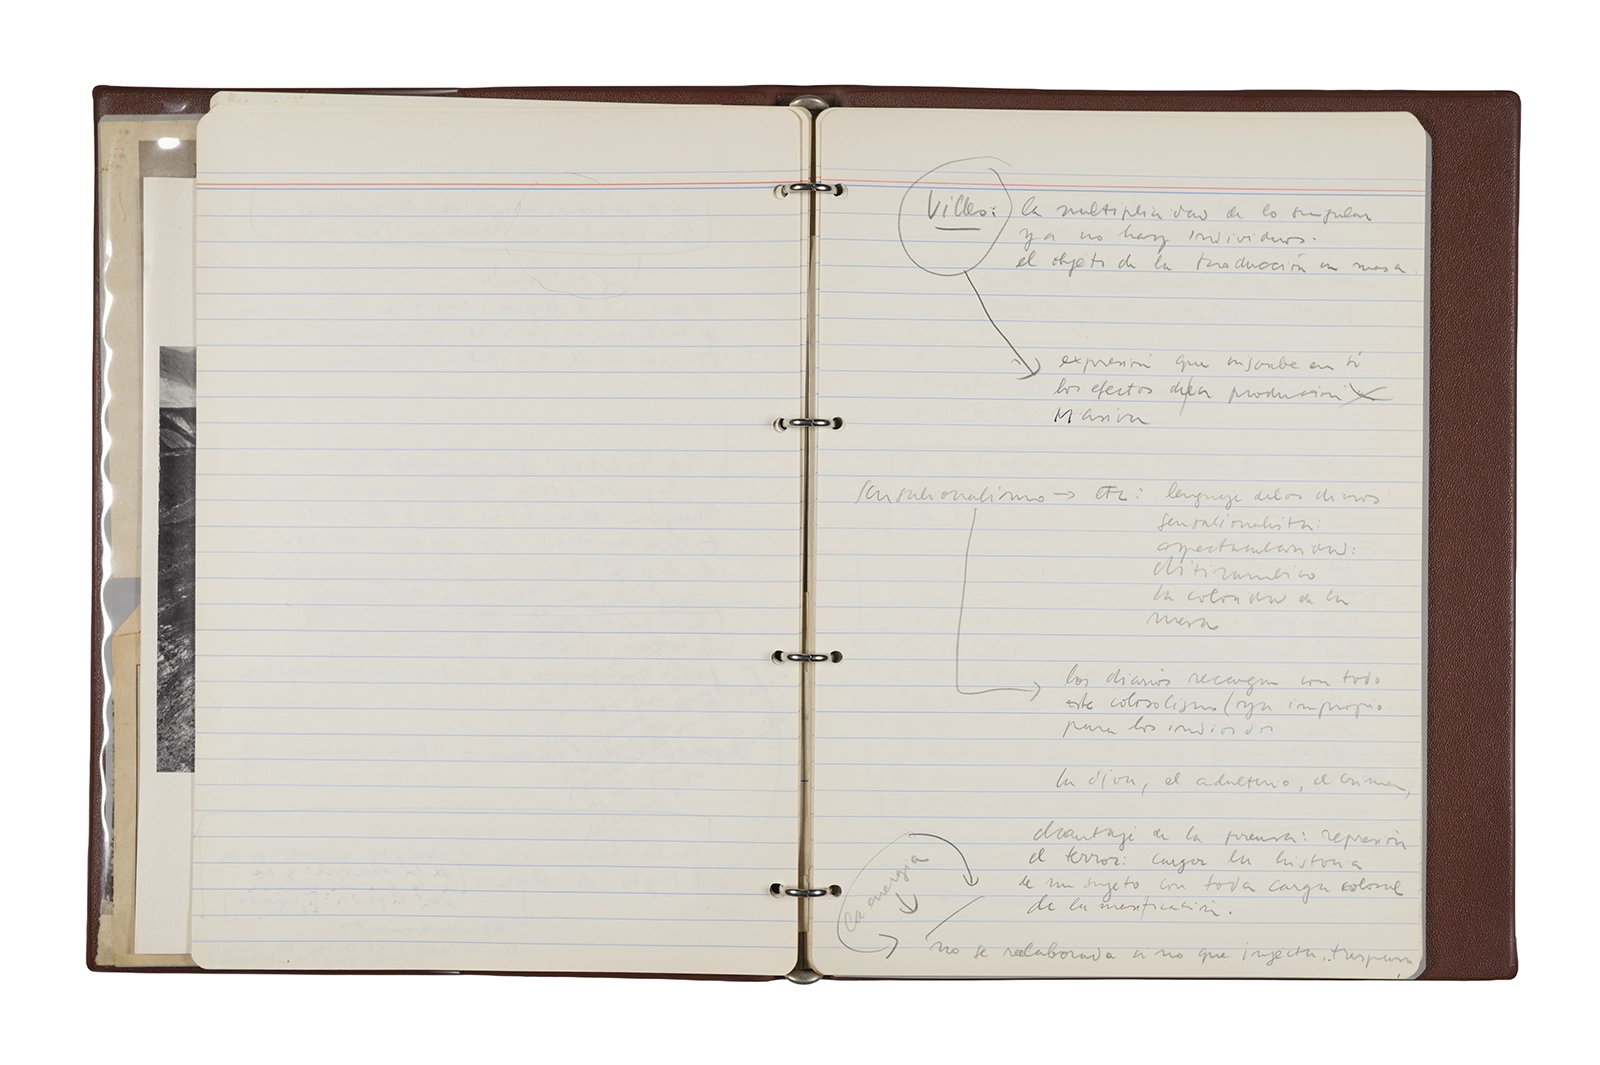 la multiplicidad de lo singular
ya no hay individuos.
el objeto de la producción en masa.
expresión que inscribe en sí
los efectos de la producción
Masiva
sensacionalismo → etc: lenguaje de los diarios
sensacionalista:
espectacularidad:
ditirámbico
la colosidad de la
masa
los diarios recargan con todo
este colosalismo (ya impropio
para los individuos
la, el adulterio, el crimen,
de la prensa: represión
el terror: cargar la historia
de un sujeto con toda carga colosal
de la masificación.
la energía
no se reelaborada si no que inyecta, traspasa